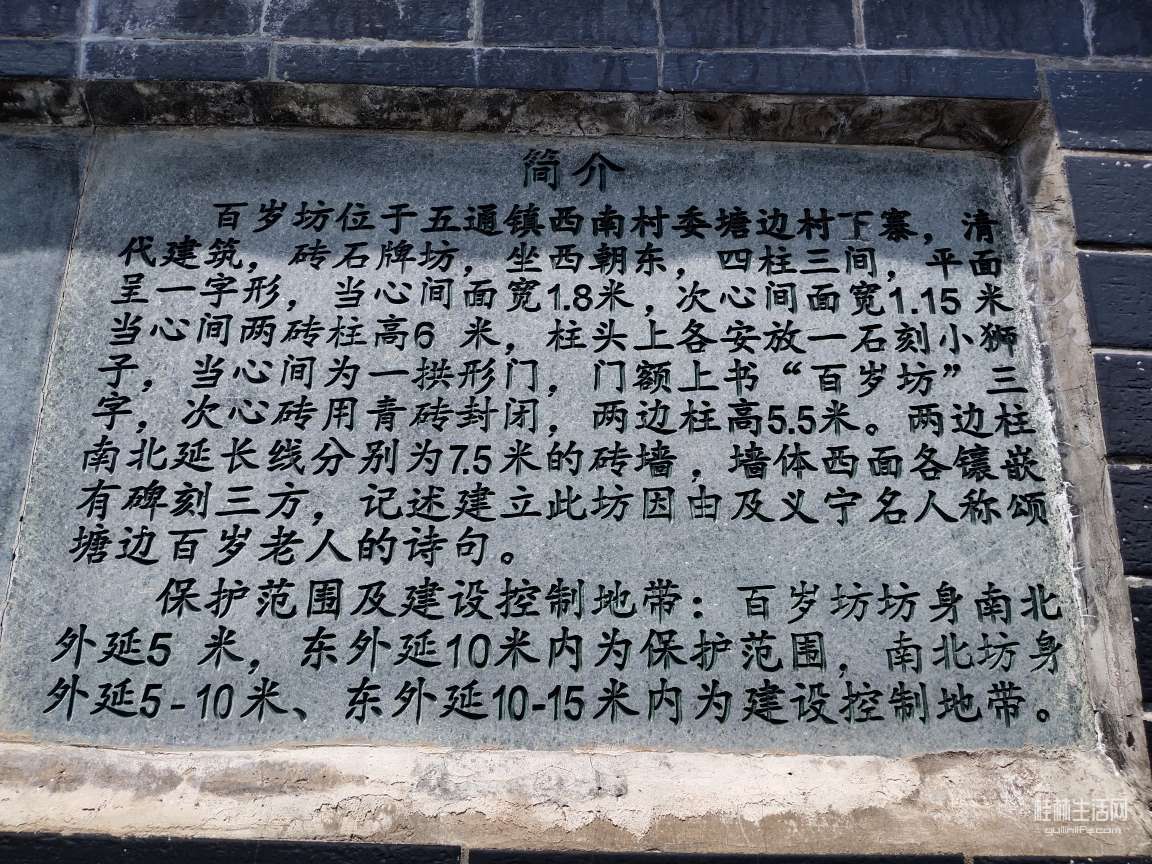 简介
百岁坊位于五通镇西南村委塘边村下寨，清
代建筑，砖石牌坊，坐西朝东，四柱三间，平面
呈一字形，当心间面宽1.8米，次心间面宽1.15 米
当心间两砖柱高6 米，柱头上各安放一石刻小狮
子，当心间为一拱形门，门额上书“百岁坊”三
字，次心砖用青砖封闭，两边柱高5.5米。两边柱
南北延长线分别为7.5米的砖墙，墙体西面各镶嵌
有碑刻三方，记述建立此坊因由及义宁名人称颂
塘边百岁老人的诗句。
保护范围及建设控制地带：百岁坊坊身南北
外延5 米，东外延10米内为保护范围，南北坊身
外延5-10米、东外延10-15米内为建设控制地带。
桂林生活网
guilinlife.com